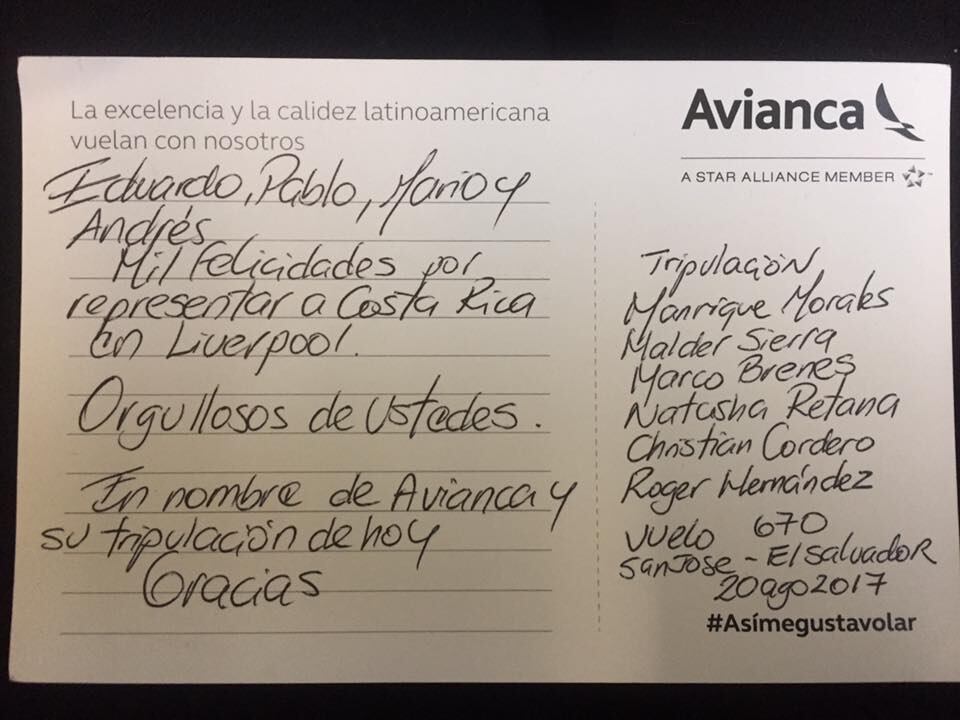 La excelencia y la calidez latinoamericana
vuelan con nosotros
Eduardo, Pablo, Mario y
Andrés
Mil Felicidades por
representar a Costa Rica
en Liverpool.
Orgullosos de Ustedes.
En nombre de Avianca y
su tripulación de hoy
Gracias
Avianca
A STAR ALLIANCE MEMBER
Tripulación
Manrique Morales
Malder Sierra
Marco Brenes
Natasha Retana
Christian Cordero
Roger Hernández
Vuelo 670
San Jose - El Salvador
20 ago 2017
#Asímegustavolar